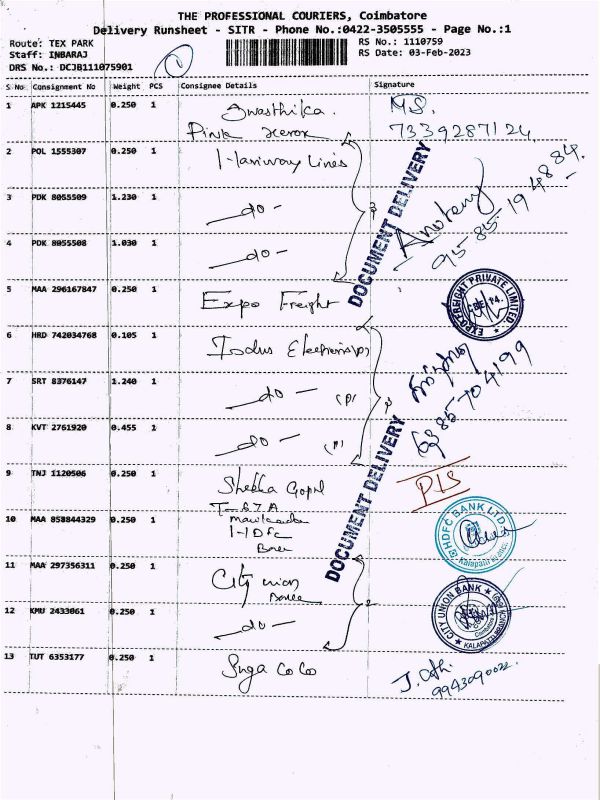 THE PROFESSIONAL COURIERS, Coimbatore
Delivery Runsheet - SITR - Phone No.:0422-3505555 - Page No.:1
Route: TEX PARK RS No.: 1110759
Staff: INBARAJ RS Date: 03-Feb-2023
DRS No.: DCJB111075901
S No Consignment No Weight PCS Consignee Details Signature
1 APK 1215445 0.250 1 Swasthika. M.S.
Pink Xerox 7339287124
2 POL 1555307 0.250 1 Hariway Lines
3 PDK 8055509 1.230 1 -do-
4 PDK 8055508 1.030 1 -do-
DOCUMENT DELIVERY
95 85 19 48 84.
5 MAA 296167847 0.250 1 Expo Freight
EXPO FREIGHT PRIVATE LIMITED
6 HRD 742034768 0.105 1
7 SRT 8376147 1.240 1 -do- (P)
8 KVT 2761920 0.455 1 -do- (P)
6385704199
DOCUMENT DELIVERY
9 TNJ 1120506 0.250 1 Shekka Gopal
10 MAA 858844329 0.250 1
HDFC
HDFC BANK LTD.
11 MAA 297356311 0.250 1 City union
12 KMU 2433061 0.250 1 -do-
CITY UNION BANK
13 TUT 6353177 0.250 1 Suga CoCo
9943090022.